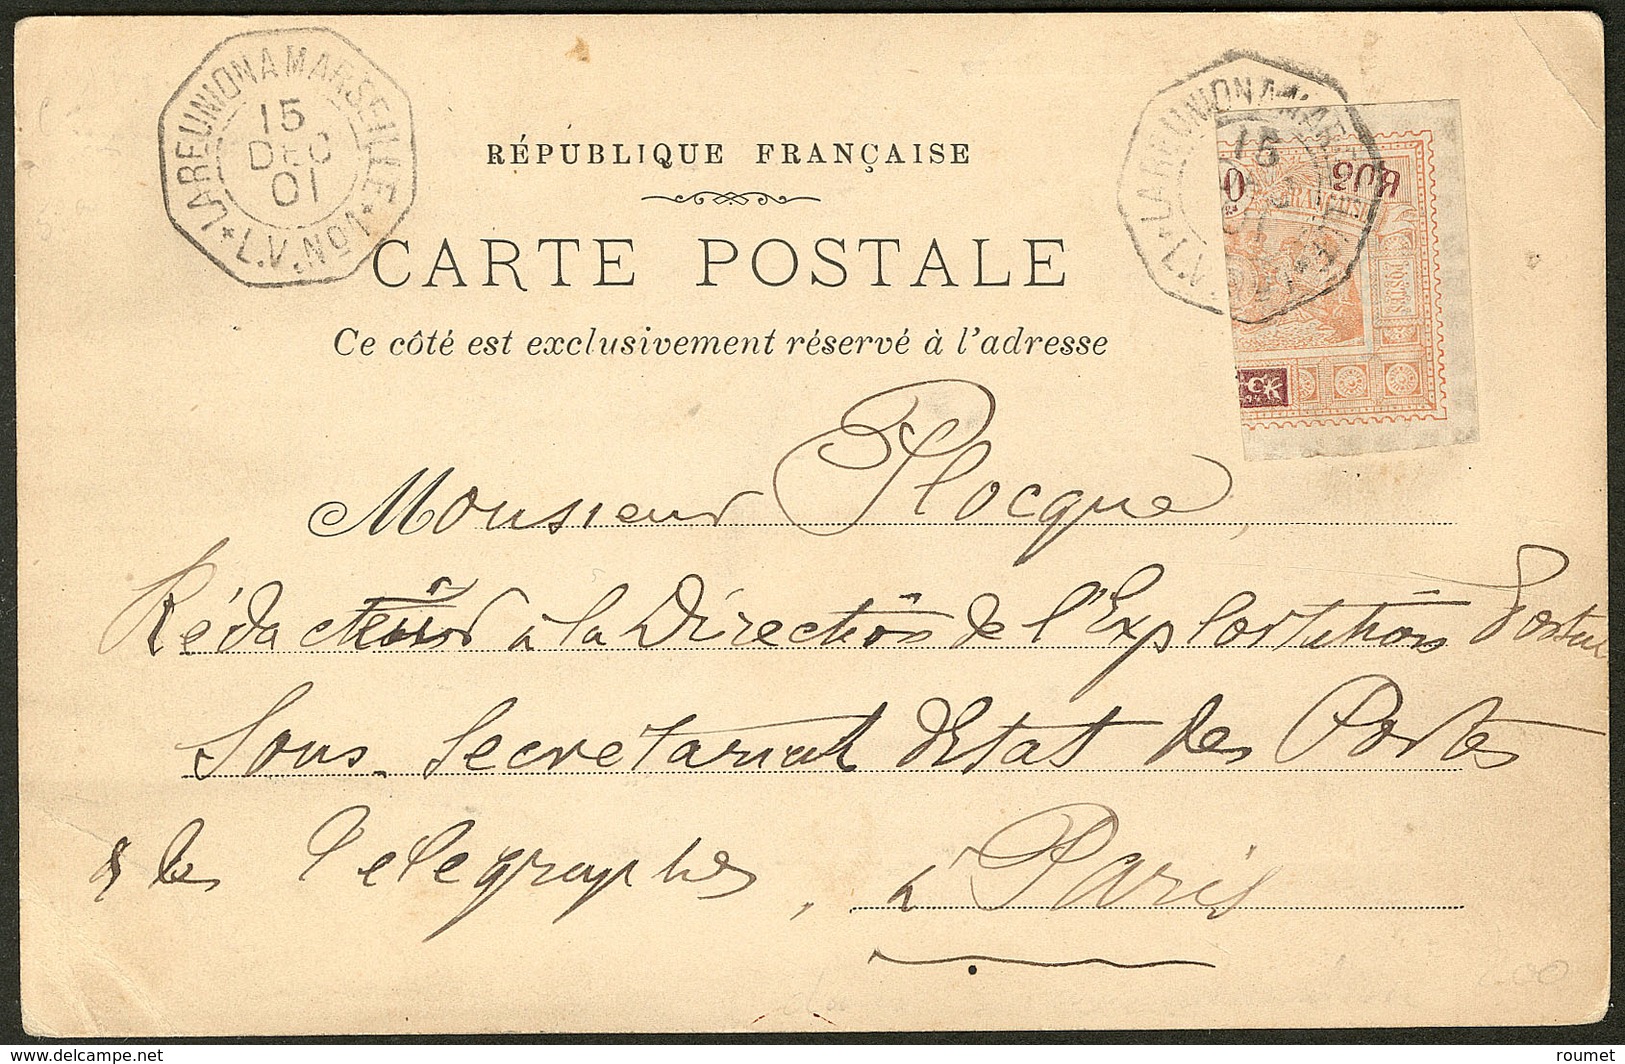 LA REUNION A MARSEILLE
15
DEC
01
* L.V. No 1 *
LA REUNION A MAR
15
L.V
RÉPUBLIQUE FRANÇAISE
CARTE POSTALE
Ce côté est exclusivement réservé à l'adresse
0
POSTES
Monsieur Plocque,
Rédacteur à la Direction de l'Exploitation Postale
Sous-Secretariat d'Etat des Postes
& les Telegraphes, à Paris
delcampe.net
roumet